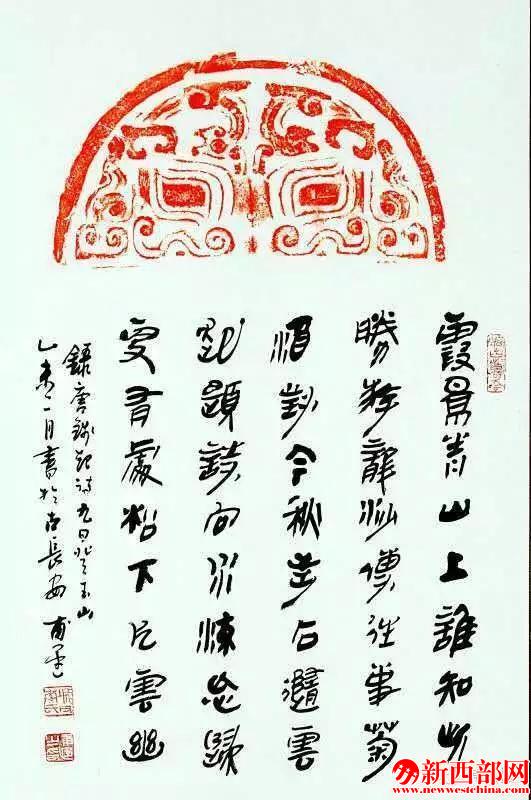 霞景青山上誰知此
勝游龍沙傳往事菊
酒對今秋步石隨雲
起題詩向水流忘歸
更有處松下片雲幽
錄唐錢起詩九日登玉山
乙未一月書於古長安
新西部网
www.newestchina.com